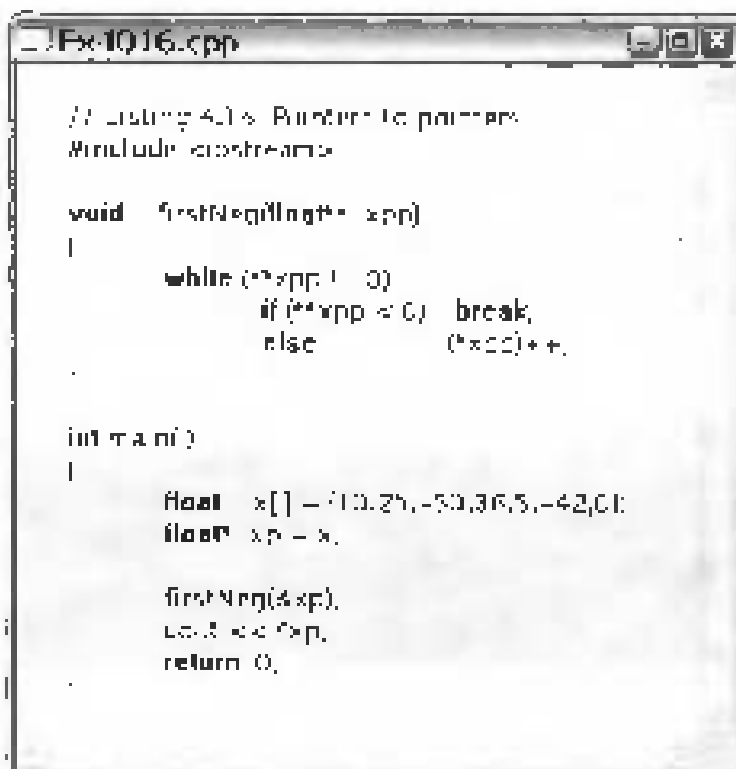 Ex-1016.cpp
// Listing Pointers to pointers
#include <iostream>
void firstNeg(float** xpp)
{
while (**xpp != 0)
if (**xpp < 0) break;
else (*xpp)++;
}
int main()
{
float x[] = {10,25,-50,36,5,-42,0};
float* xp = x;
firstNeg(&xp);
cout << *xp;
return 0;
}